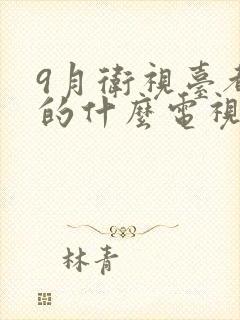 9月衛視臺都
的什麼電視
林青